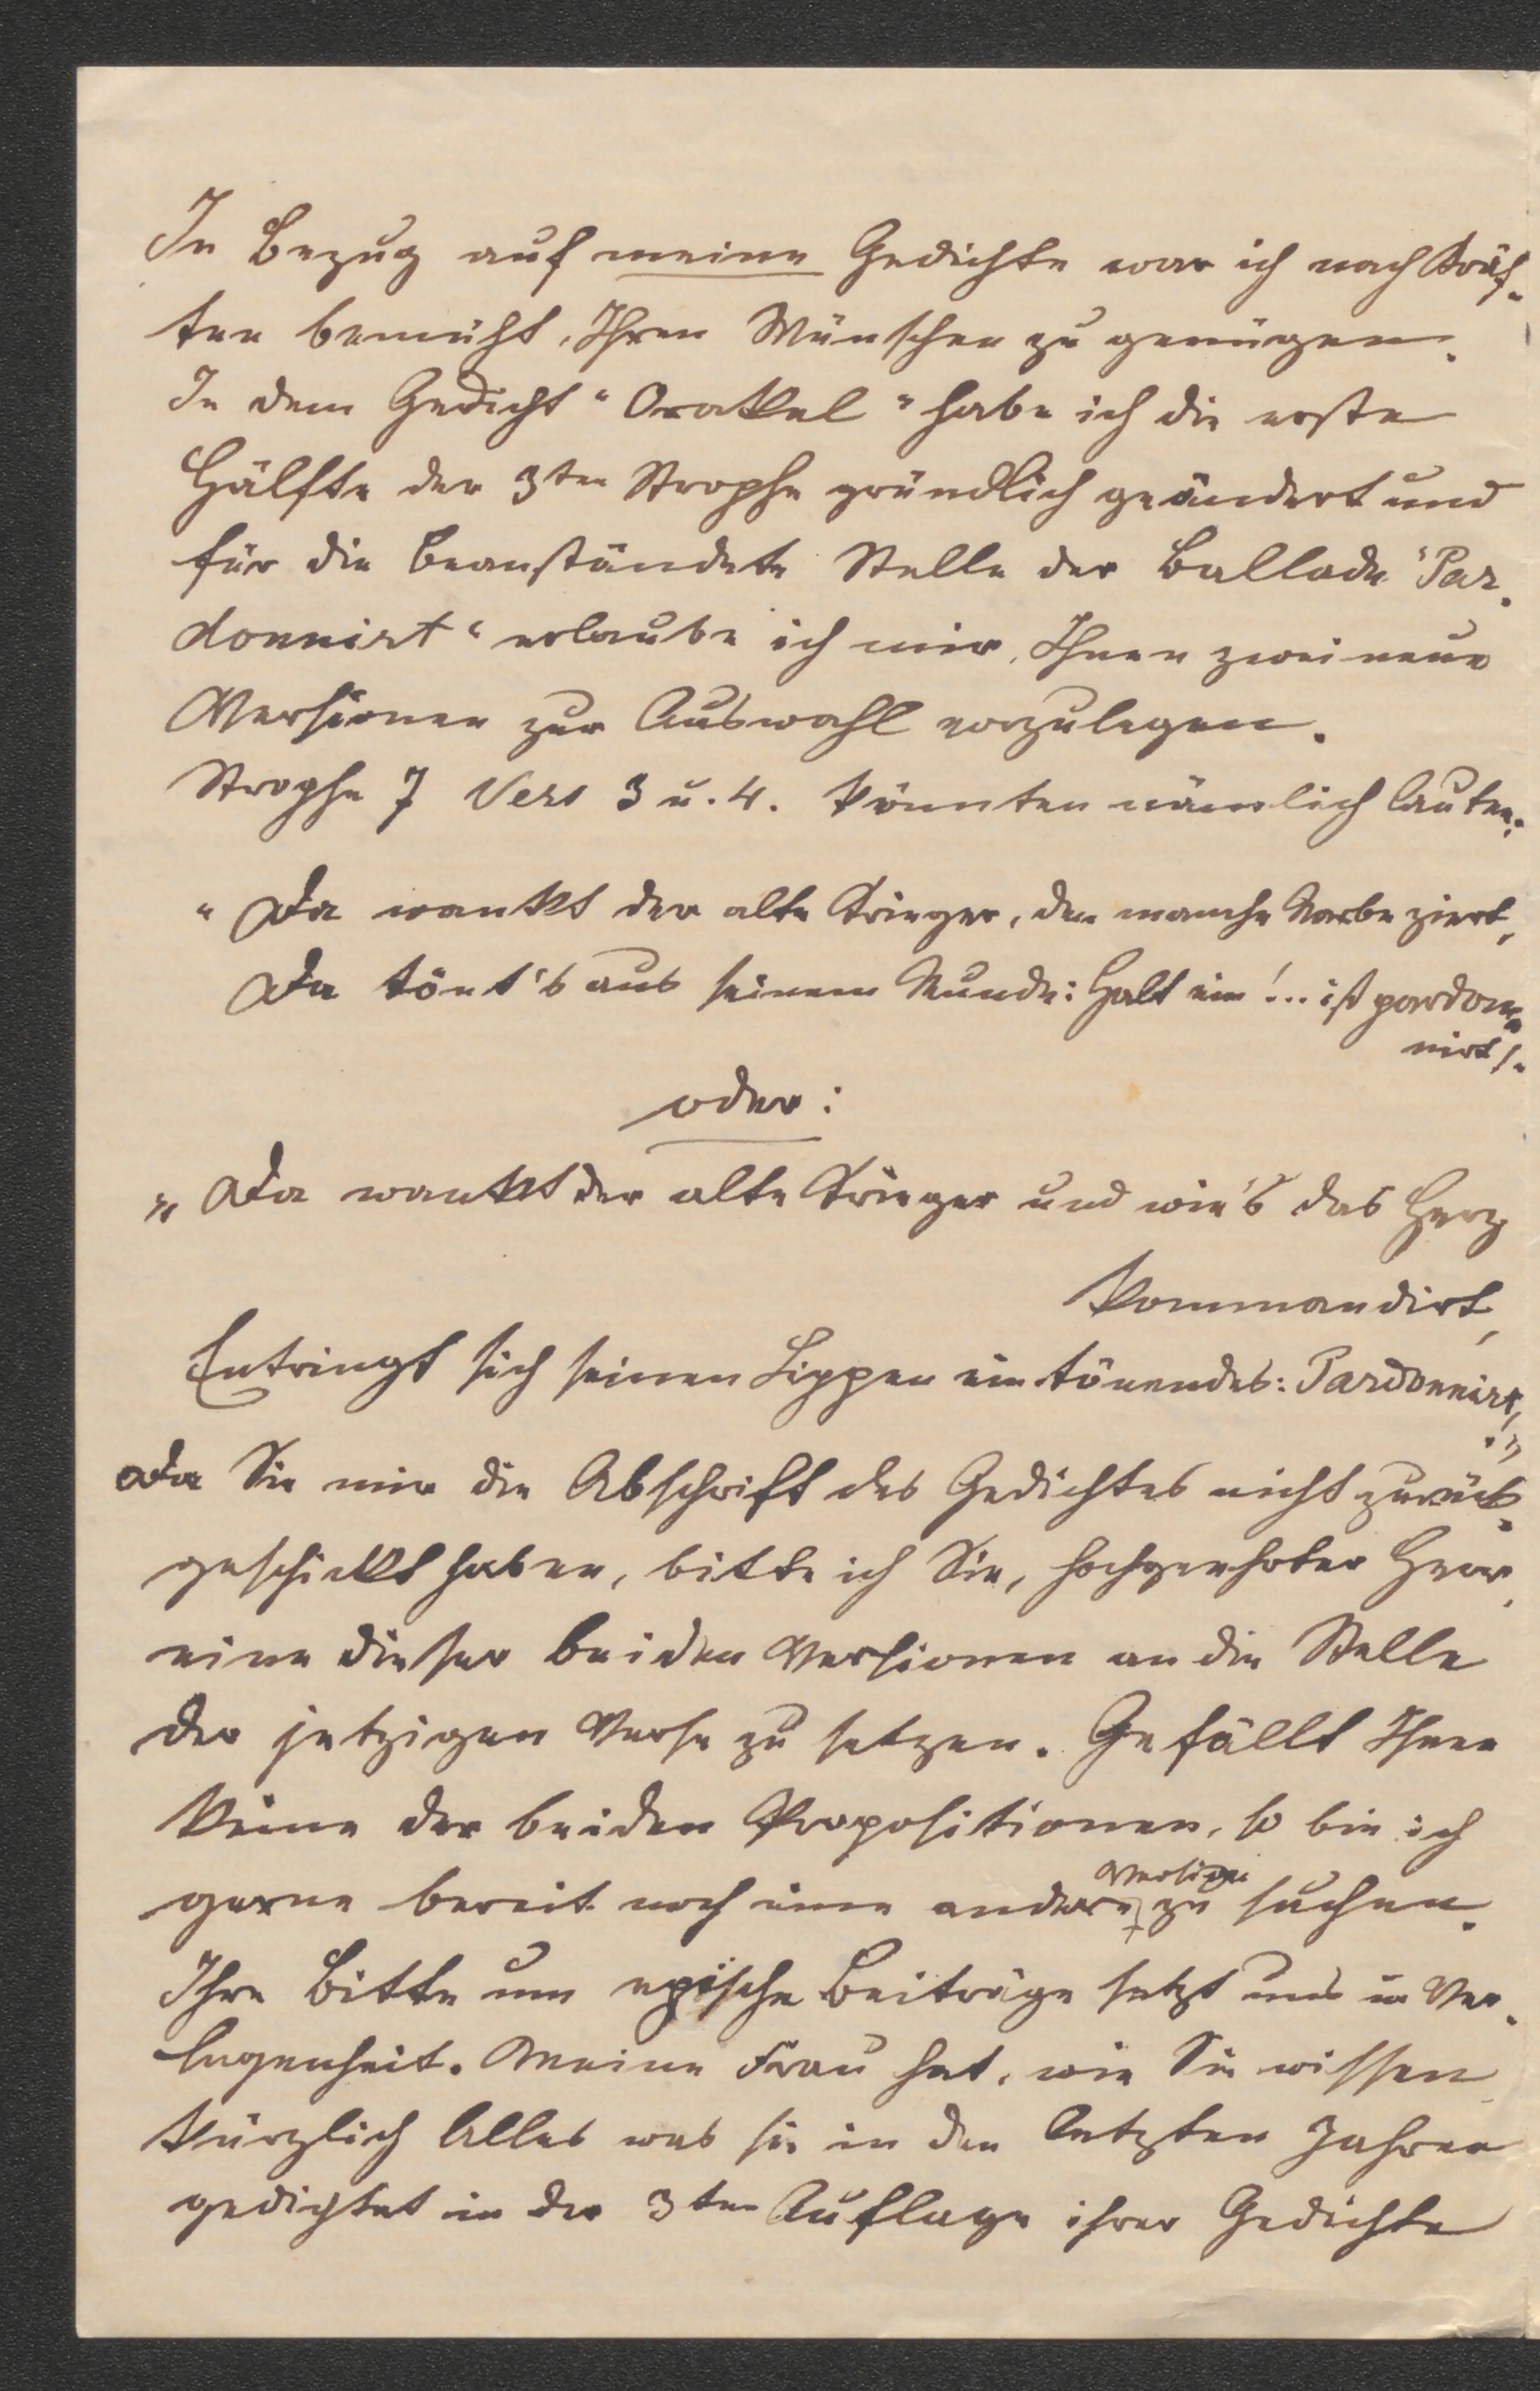 In Bezug auf meine Gedichte war ich nach Kräf-
ten bemüht, Ihren Wünschen zu genügen.
In dem Gedicht "Orakkel" habe ich die erste
Hälfte der 3ten Strophe gründlich geändert und
für die beanständete Stelle der Ballade "Par-
donnirt" erlaube ich mir, Ihnen zwei neue
Versionen zur Auswahl vorzulegen.
Strophe 7 Vers 3 u. 4. könnten nämlich lauten:
"Da wankt der alte Krieger, den manche Narbe ziert,
Da tönt's aus seinem Munde: Halt ein!... ist pardon-
nirt!"
oder:
"Da wankt der alte Krieger und wie's das Herz
kommandirt,
Entringt sich seinen Lippen ein tönendes: Pardonnirt!"
Da Sie mir die Abschrift des Gedichtes nicht zurück-
geschickt haben, bitte ich Sie, hochgeehrter Herr,
eine dieser beiden Versionen an die Stelle
der jetzigen Verse zu setzen. Gefällt Ihnen
keine der beiden Propositionen, so bin ich
gerne bereit noch eine andere Version zu suchen.
Ihre Bitte um epische Beiträge setzt uns in Ver-
legenheit. Meine Frau hat, wie Sie wissen
kürzlich Alles was sie in den letzten Jahren
gedichtet in der 3ten Auflage ihrer Gedichte